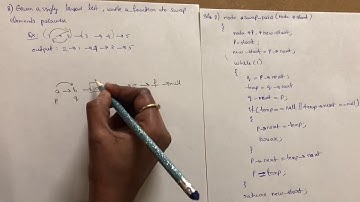 8) Given a singly linked list, write a function to swap
elements pairwise
Ex: 1 → 2 → 3 → 4 → 5
output: 2 → 1 → 4 → 3 → 5
a → b → e → f → null
p q
Sol 2) node * swap_pairs (node * start)
{
node * p, * new_start;
p = start;
new_start = p → next;
while (1)
{
q = p → next;
temp = q → next;
q → next = p;
if (temp == null || temp → next == null)
{
p → next = temp;
break;
}
p → next = temp → next
p = temp;
}
return new_start;